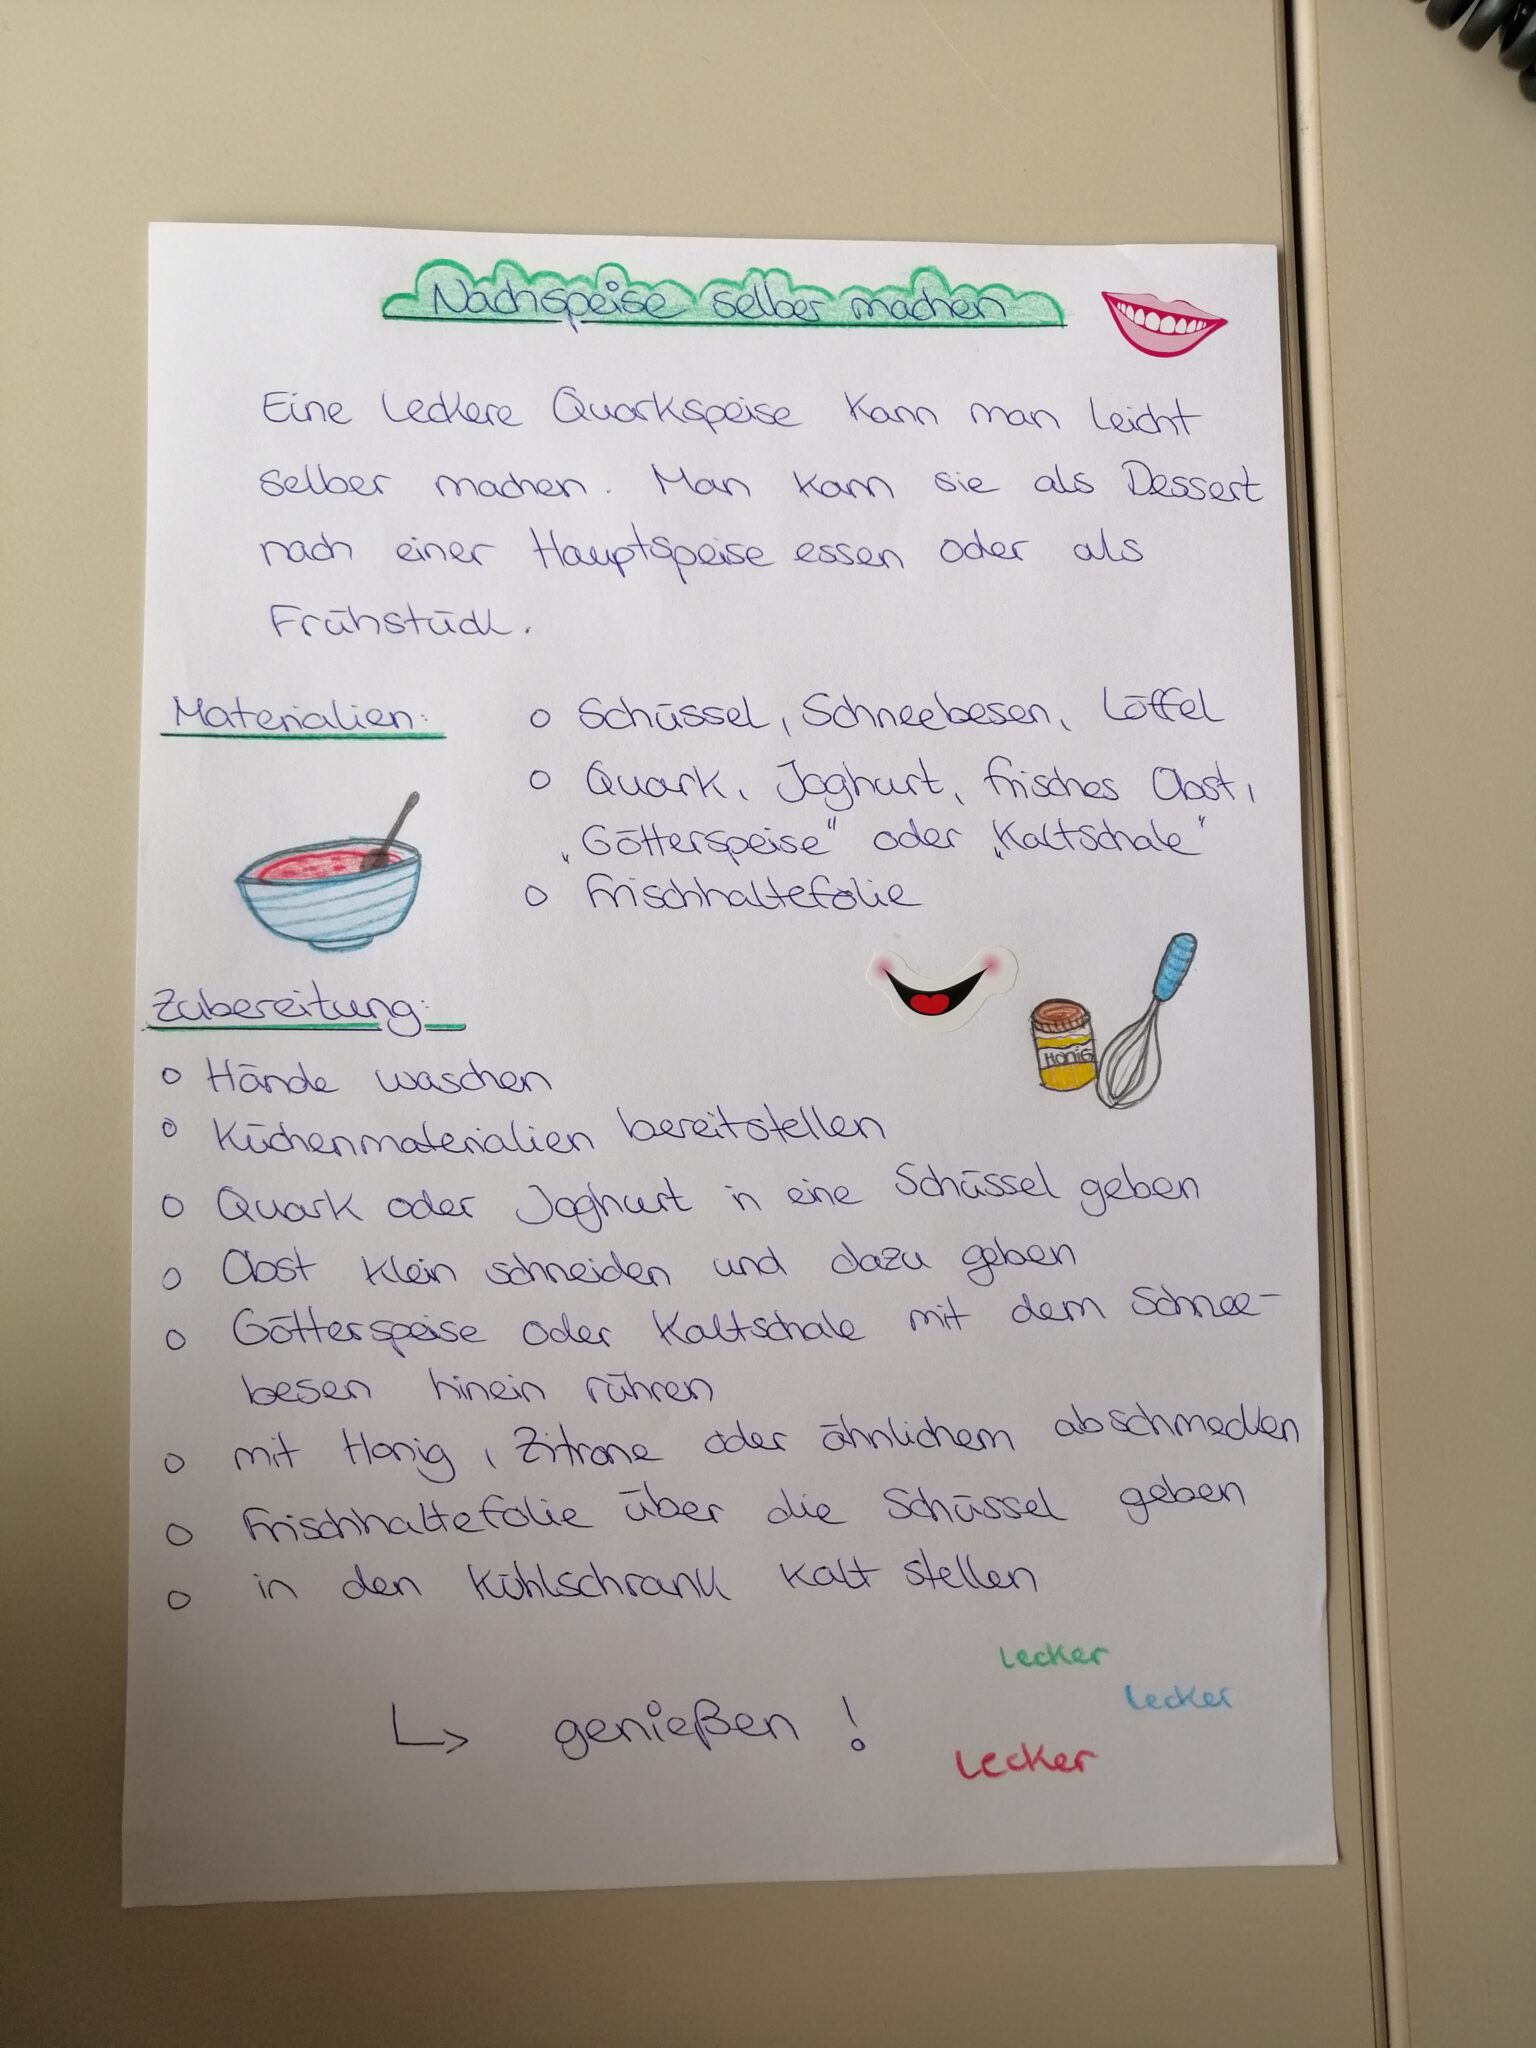 Nachspeise selber machen
Eine leckere Quarkspeise kann man leicht
selber machen. Man kann sie als Dessert
nach einer Hauptspeise essen oder als
Frühstück.
Materialien:
o Schüssel, Schneebesen, Löffel
o Quark, Joghurt, frisches Obst,
„Götterspeise“ oder „Kaltschale“
o Frischhaltefolie
Honig
Zubereitung:
o Hände waschen
o Küchenmaterialien bereitstellen
o Quark oder Joghurt in eine Schüssel geben
o Obst klein schneiden und dazu geben
o Götterspeise oder Kaltschale mit dem Schnee-
besen hinein rühren
o mit Honig, Zitrone oder ähnlichem abschmecken
o Frischhaltefolie über die Schüssel geben
o in den Kühlschrank kalt stellen
↳ genießen!
lecker
lecker
lecker